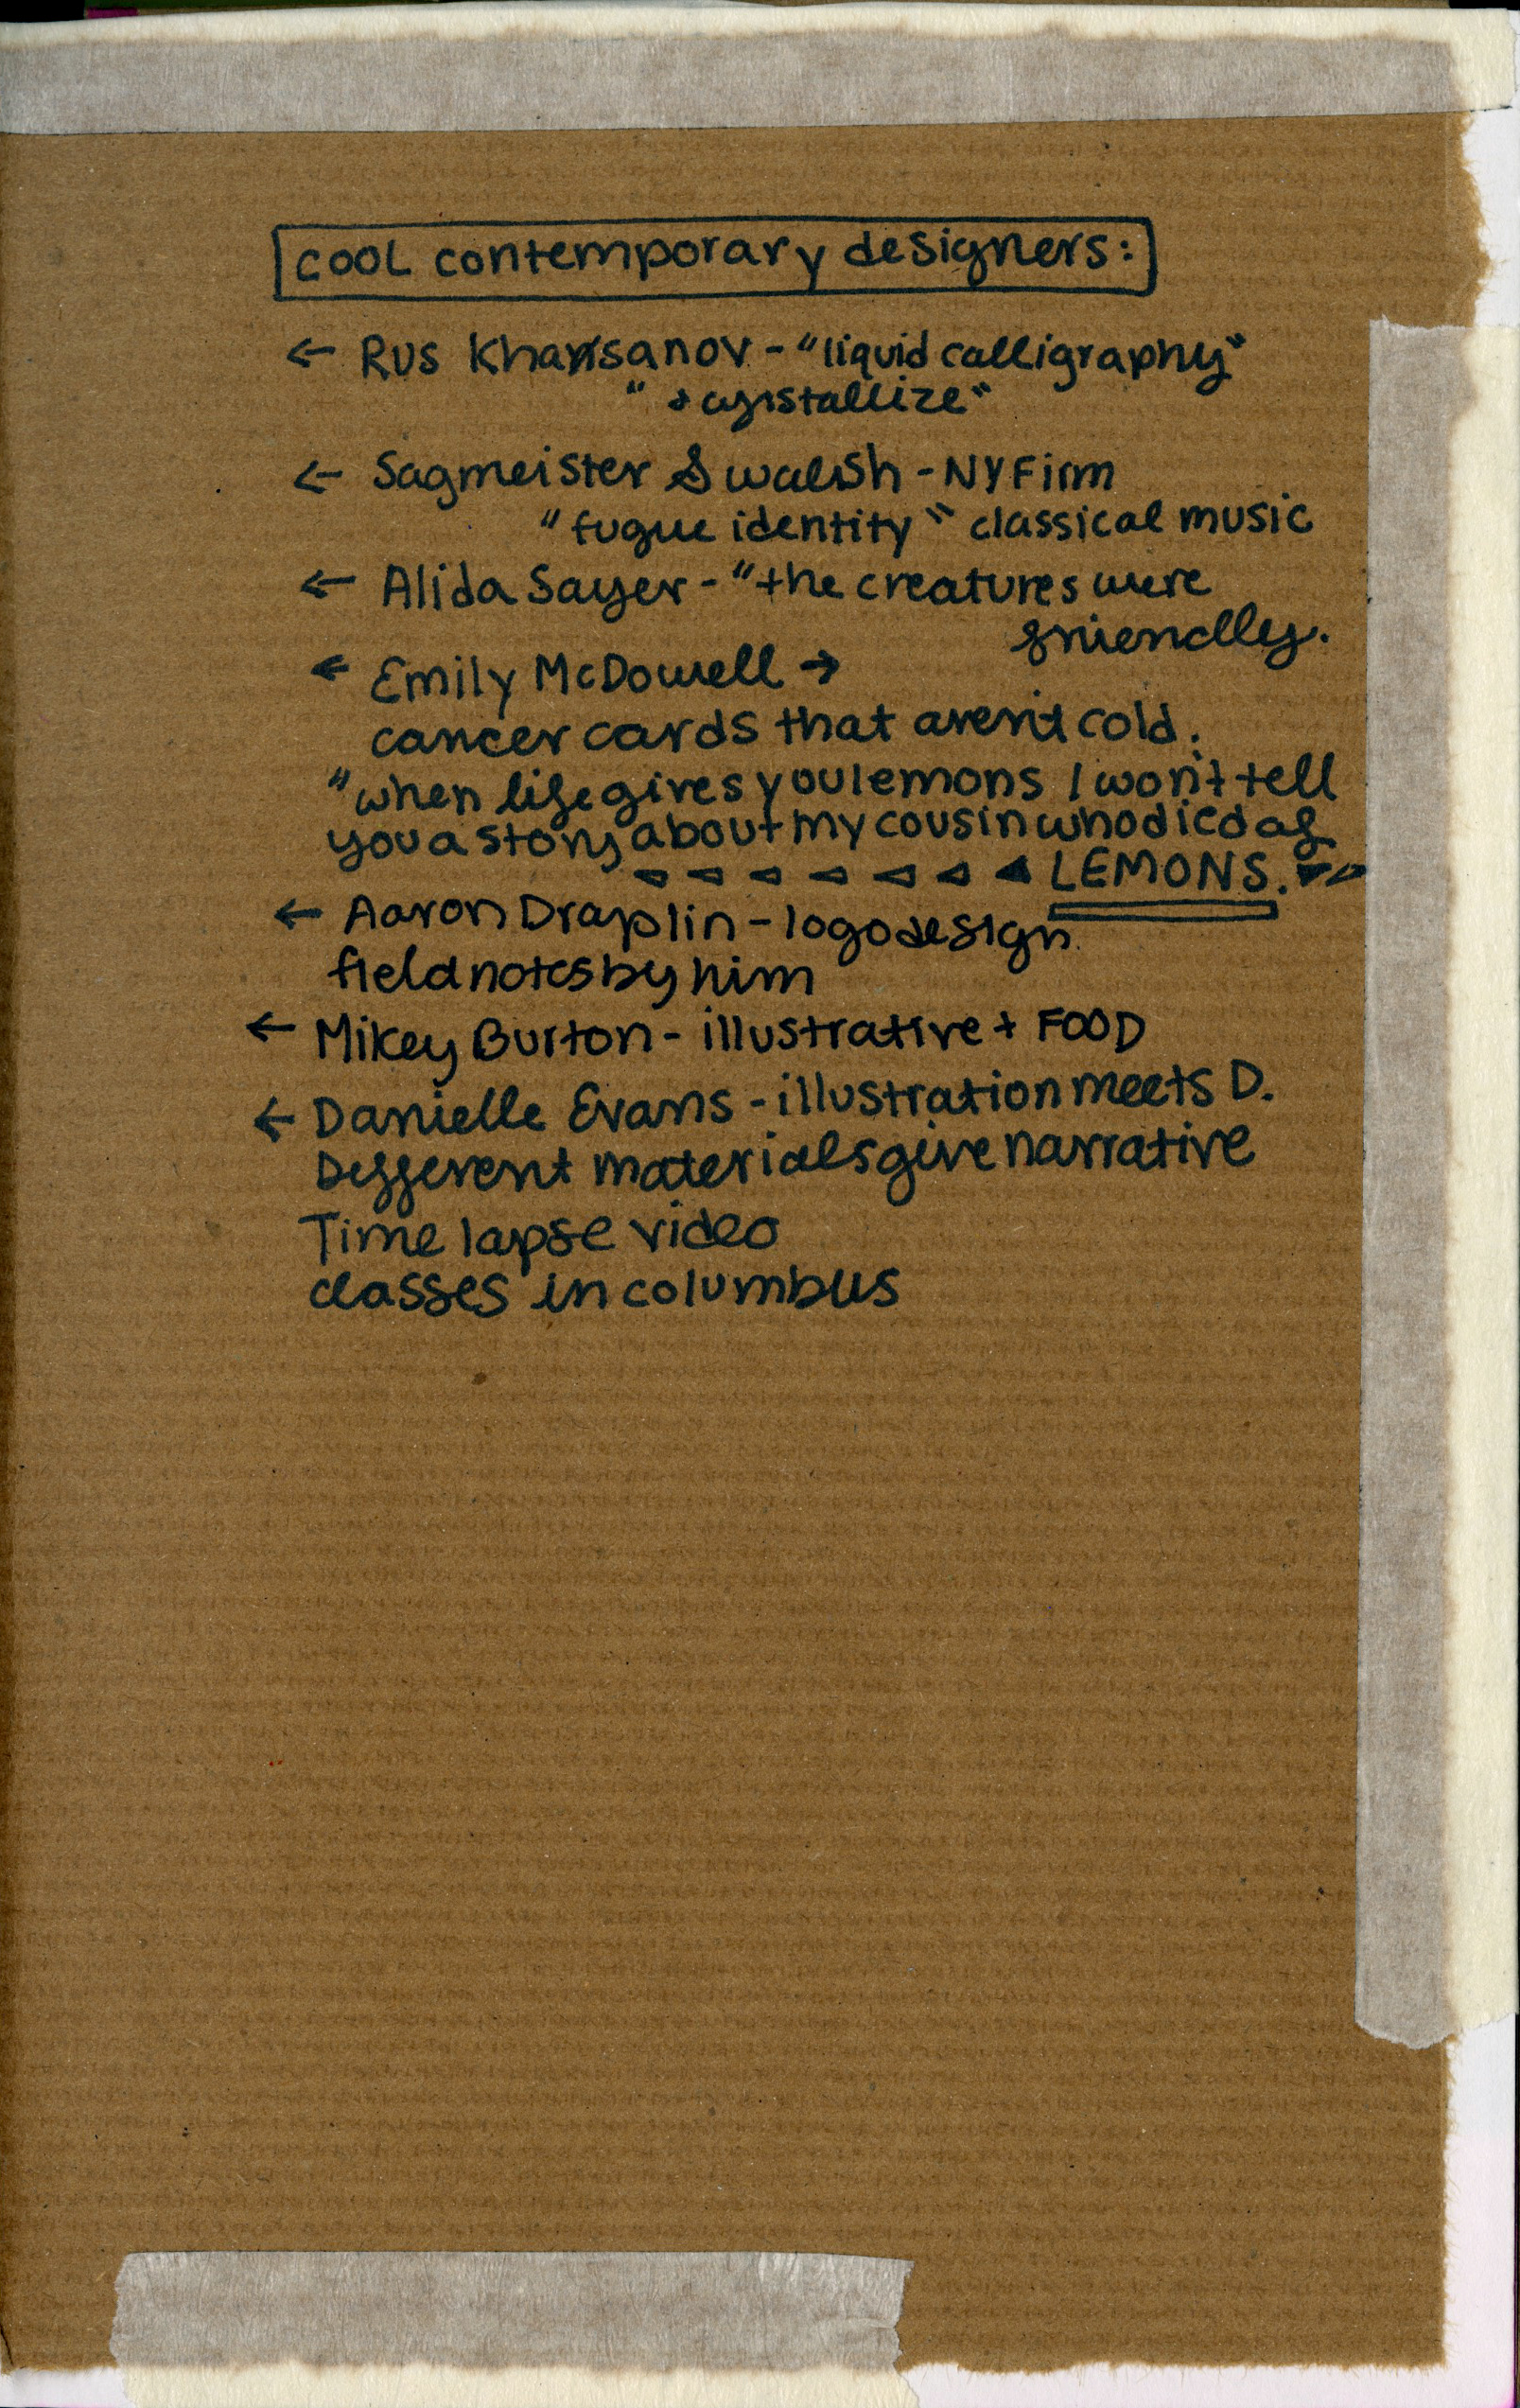 cool contemporary designers:
← Rus Khansanov - "liquid calligraphy"
" + crystallize"
← Sagmeister & walsh - NY Firm
"fugue identity" classical music
← Alida Sayer - "the creatures were
friendly.
← Emily McDowell →
cancer cards that aren't cold.
"when life gives you lemons I won't tell
you a story about my cousin who died of
LEMONS.
← Aaron Draplin - logo design
field notes by him
← Mikey Burton - illustrative + FOOD
← Danielle Evans - illustration meets D.
Different materials give narrative
Time lapse video
classes in columbus